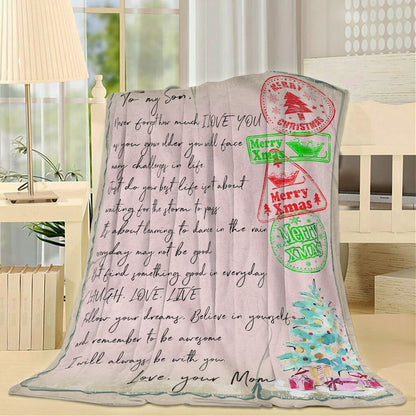 To my Son,
Never forget how much I LOVE YOU
as you grow older you will face
many challengs in life
Just do you best life isn't about
waiting for the storm to pass
It about learning to dance in the rain
everyday may not be good
but find something good in everyday
LAUGH. LOVE. LIVE
Follow your dreams. Believe in yourself
and remember to be awesome
I will always be with you
Love, your Mom
MERRY
CHRISTMAS
Merry
Xmas
Merry
Xmas
Merry
XMAS